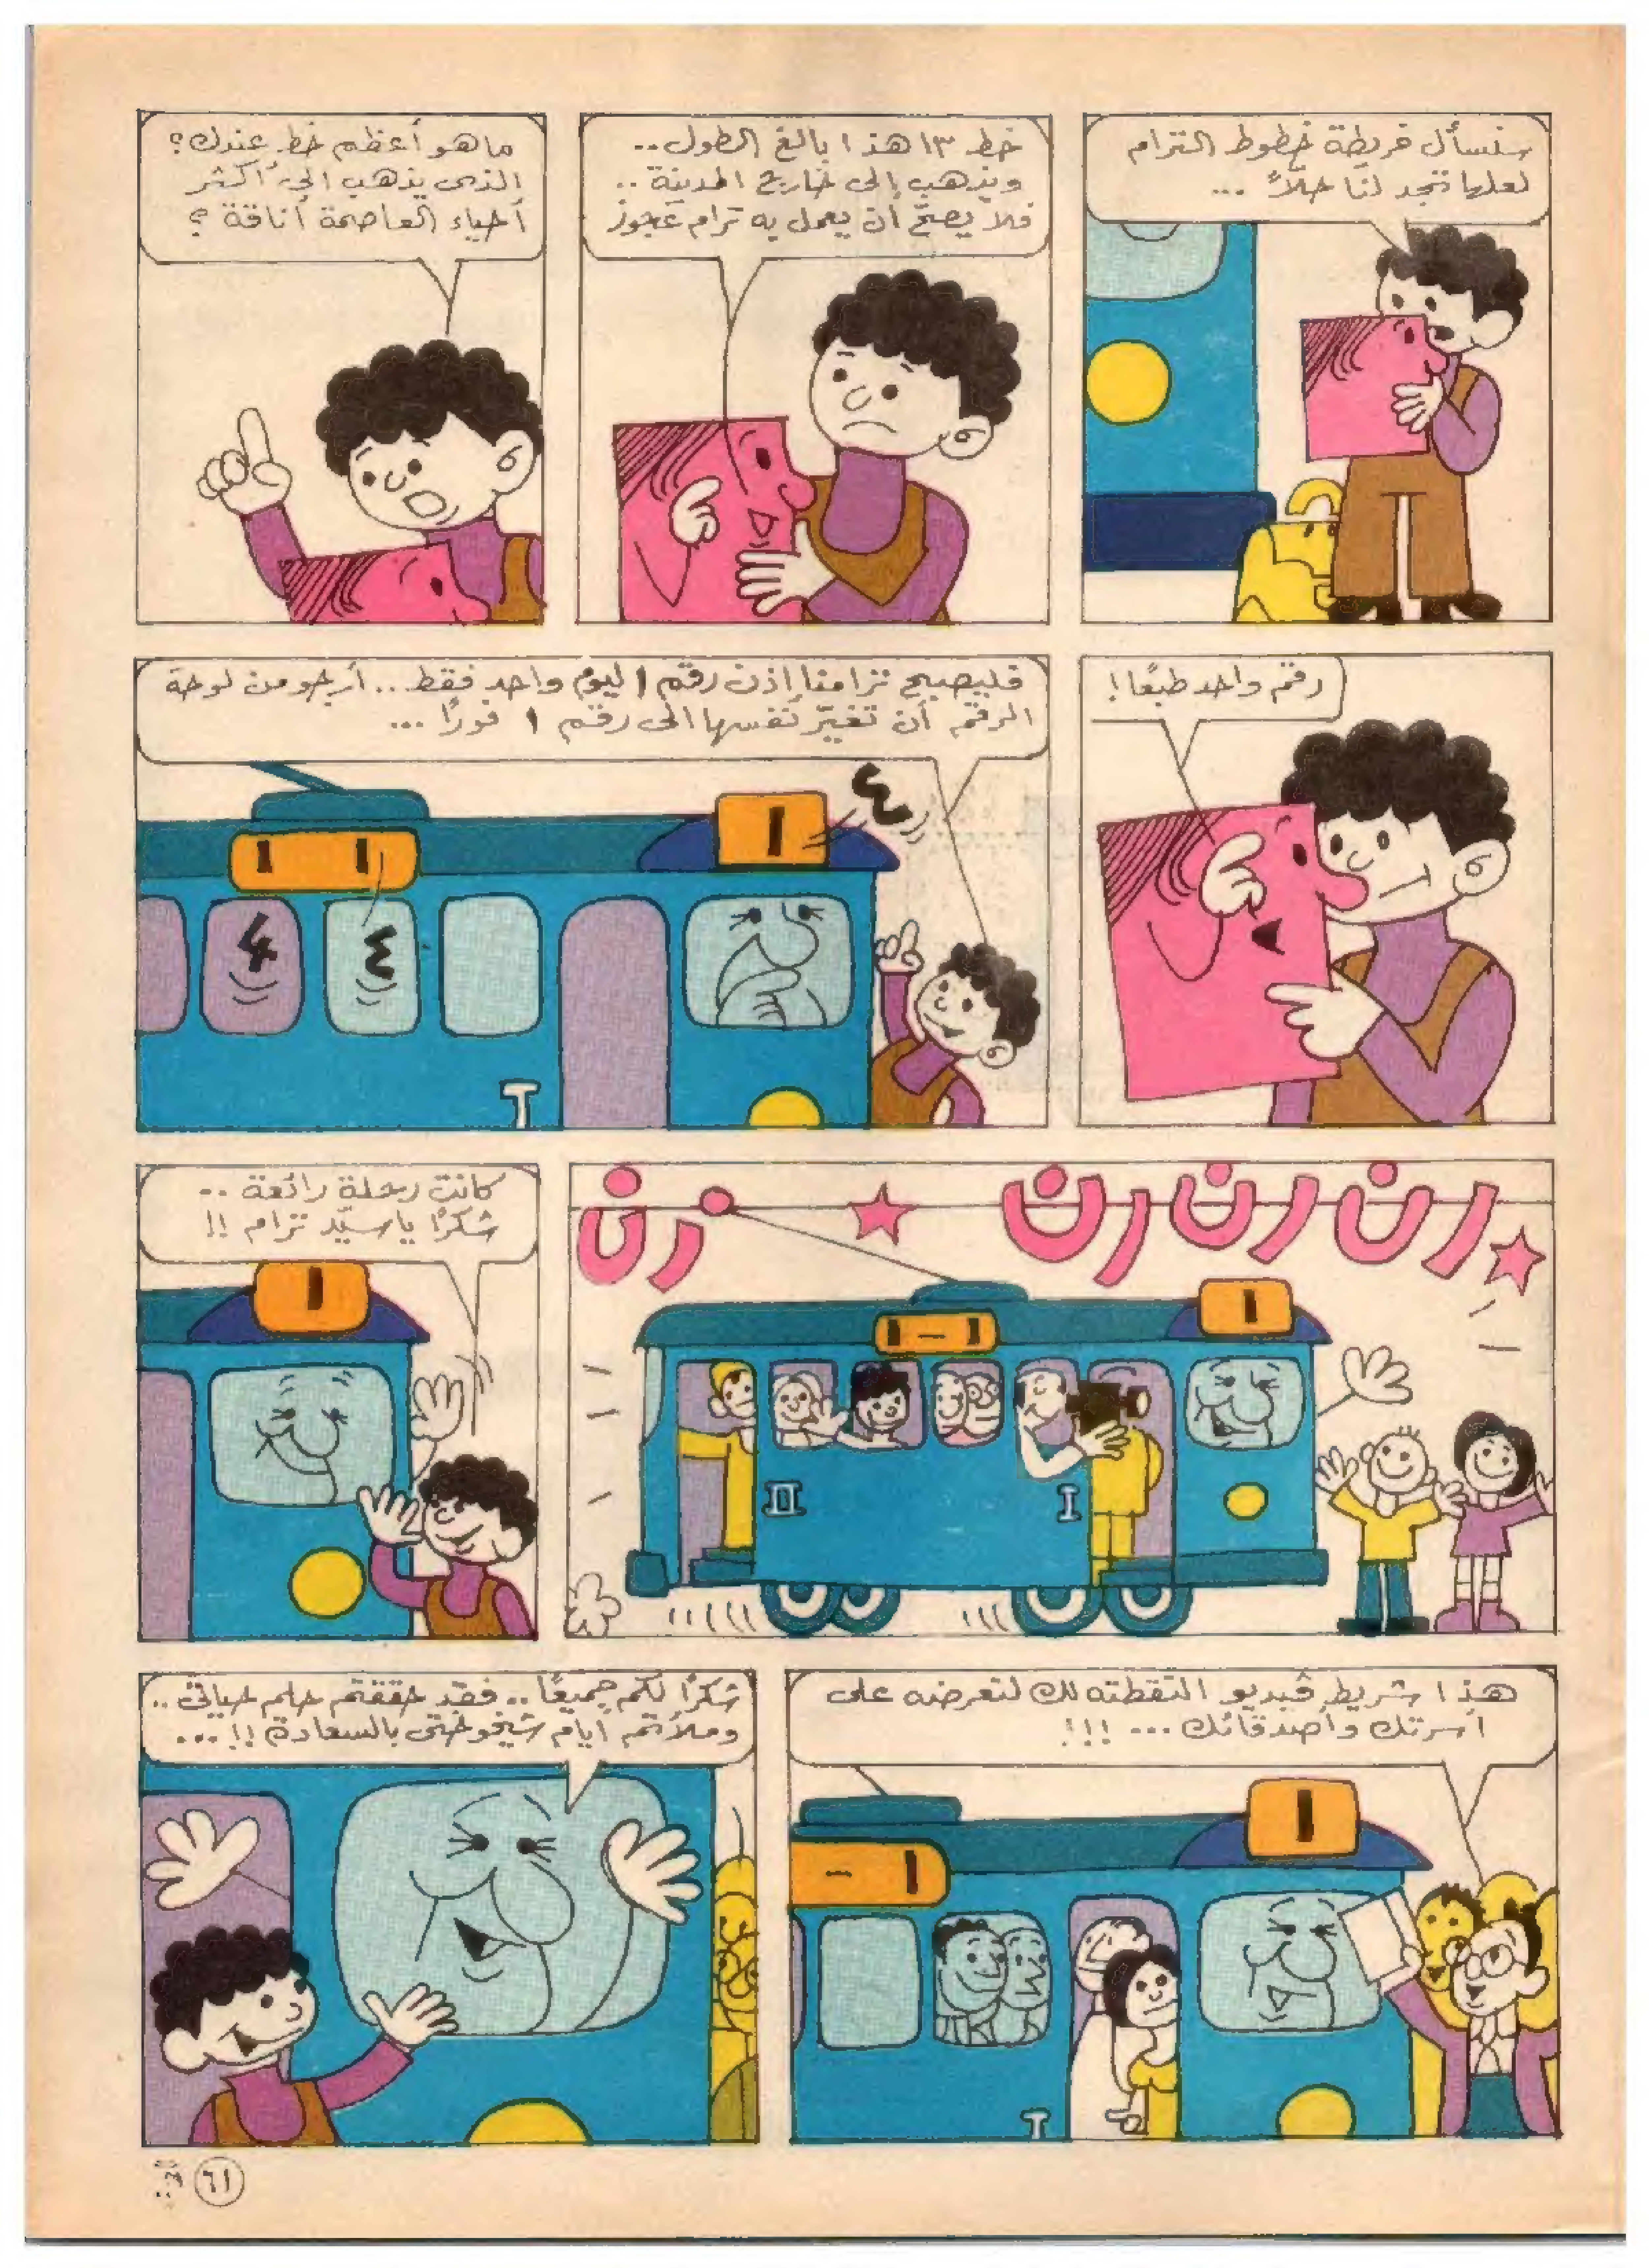 سنسأل خريطة خطوط الترام
لعلها تجد لنا حلاً ...
خط ١٣ هذا بالغ الطول ..
ويذهب إلى خارج المدينة ..
فلا يصحّ أن يعمل به ترام عجوز
ما هو أعظم خط عندك؟
الذى يذهب إلى أكثر
أحياء العاصمة أناقة؟
رقم واحد طبعًا!
فليصبح ترامنا إذن رقم ١ ليوم واحد فقط ... أرجو من لوحة
الرقم أن تغيّر نفسها الى رقم ١ فورًا ...
٤
١
١ ١
٤ ٤
T
رن رن رن رن
١
١ - ١
II I
كانت رحلة رائعة ..
شكرًا يا سيّد ترام !!
١
هذا شريط ڤيديو التقطته لك لتعرضه على
أسرتك وأصدقائك ... !!!
١
١ -
T
شكرًا لكم جميعًا .. فقد حققتم حلم حياتى ..
وملأتم أيام شيخوختى بالسعادة !! ...
٦١